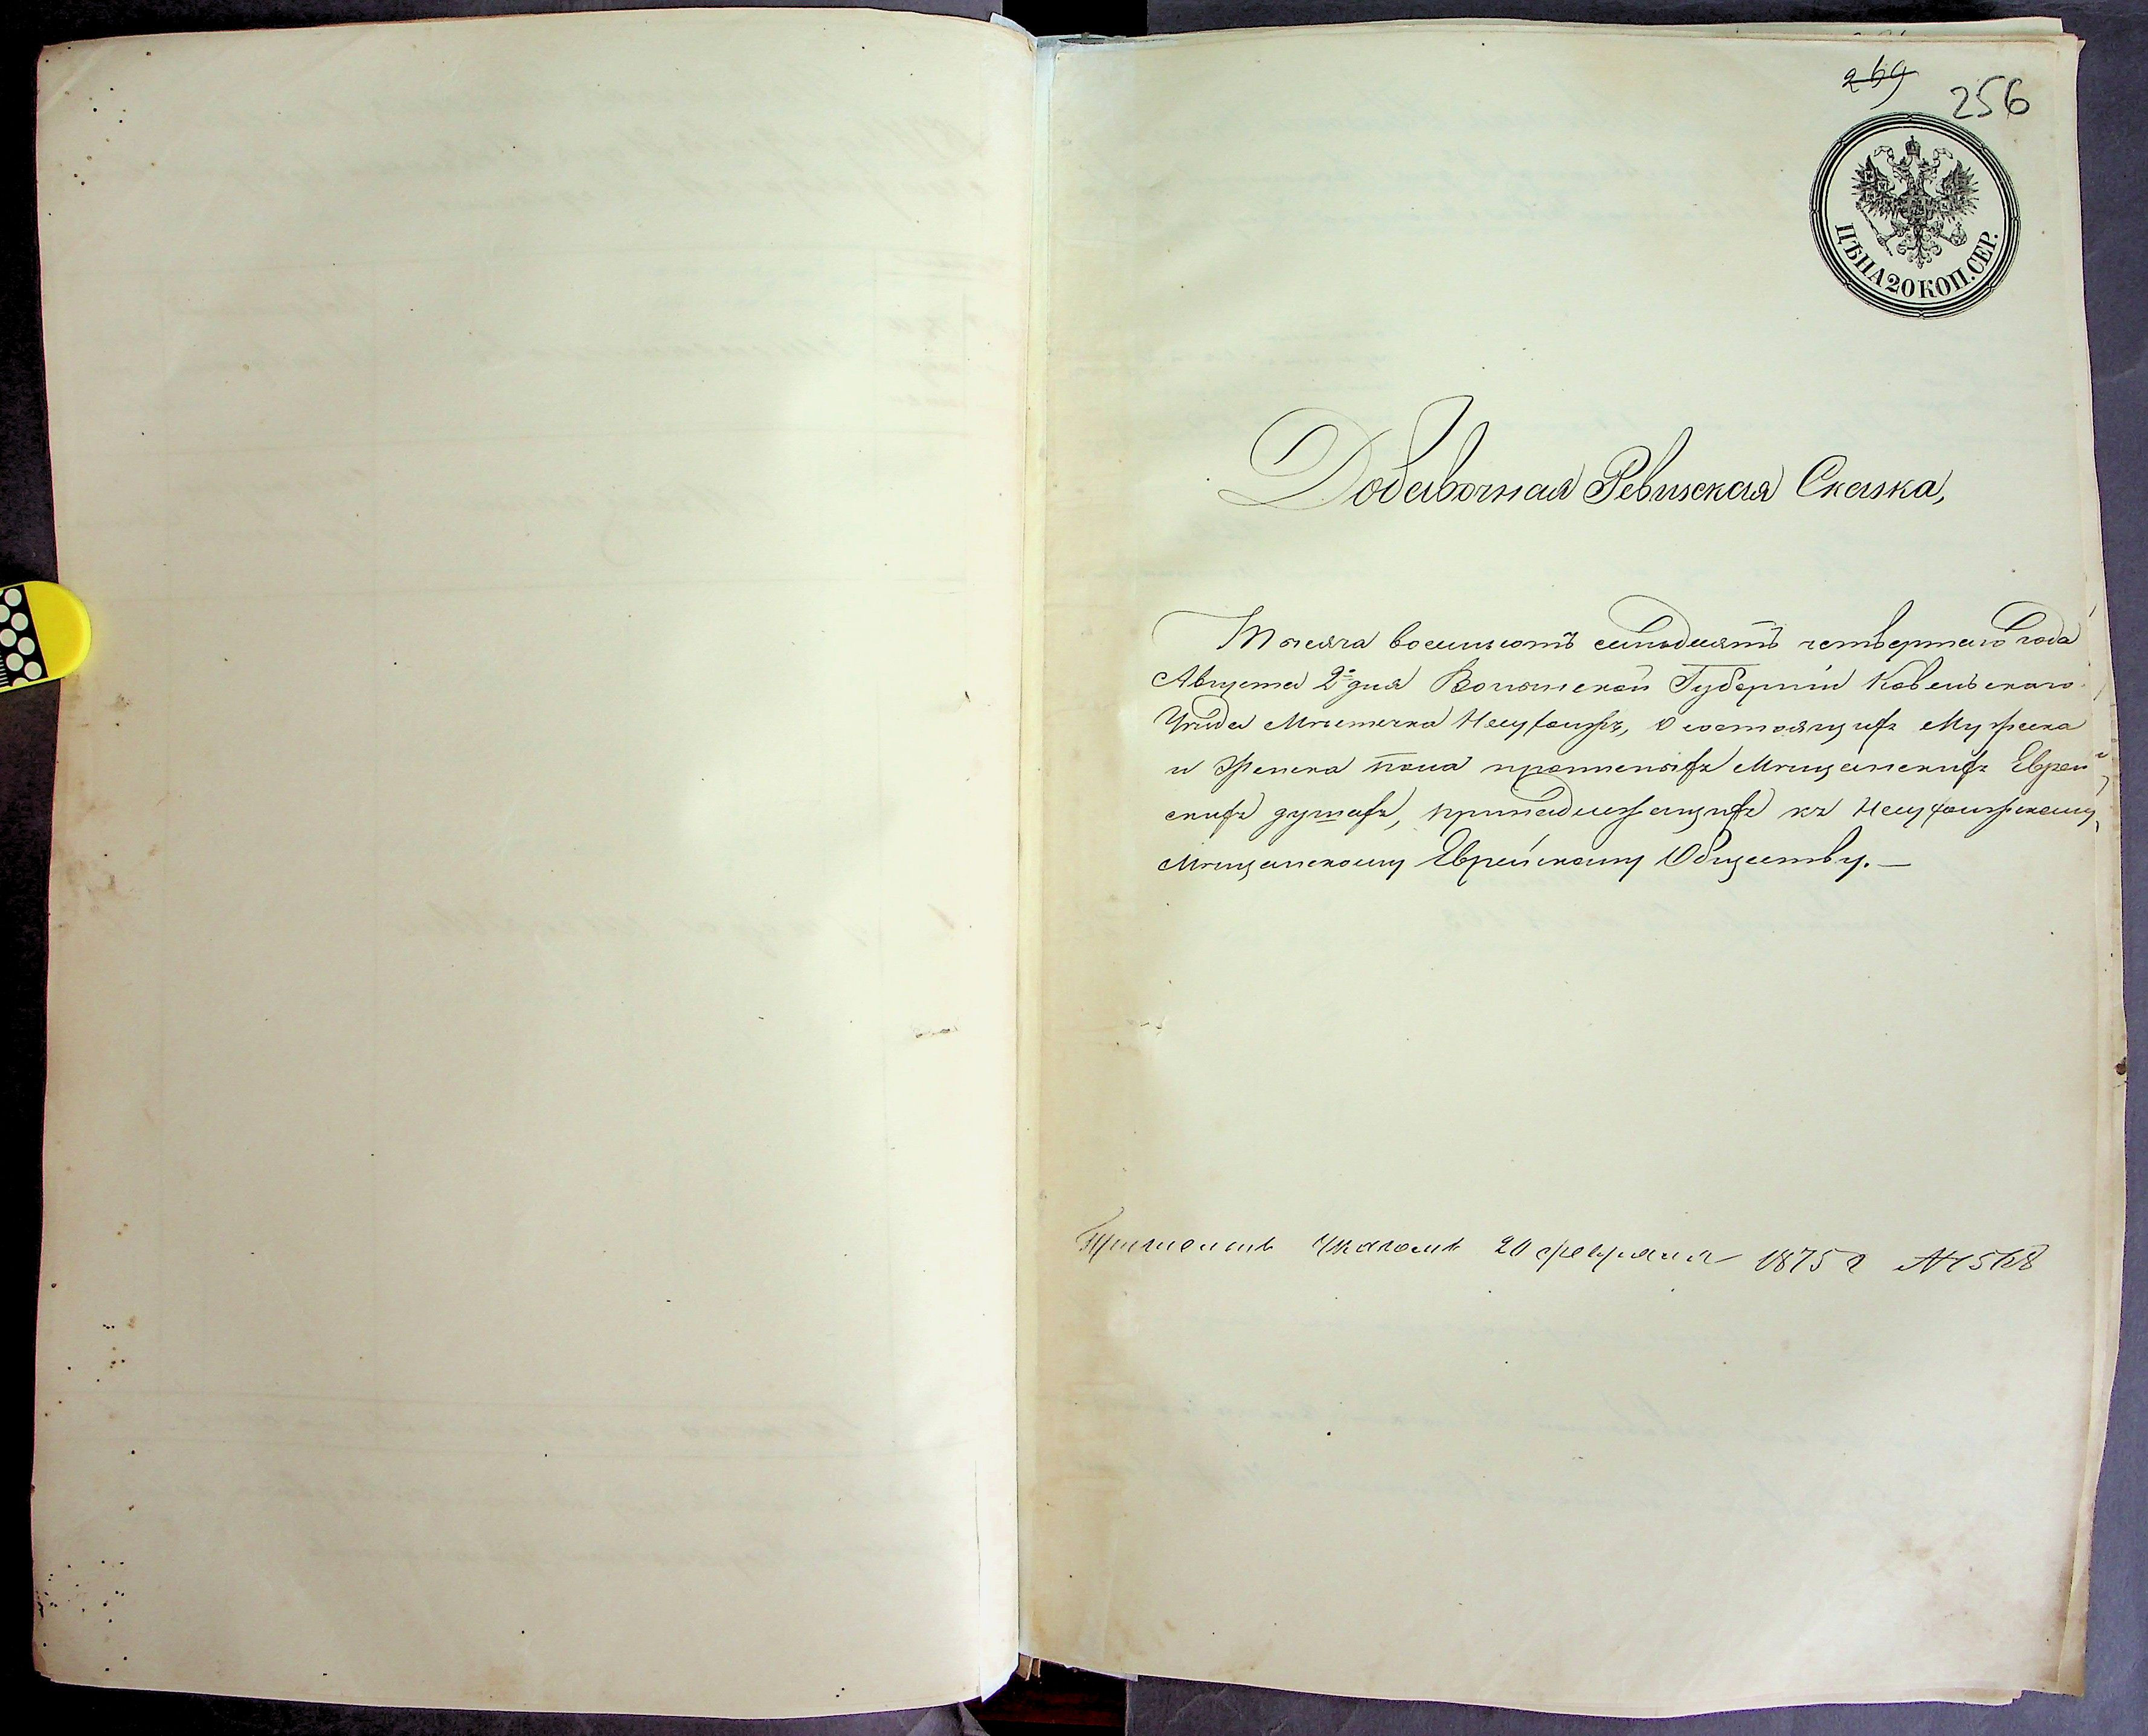 269
256
ЦѢНА 20 КОП. СЕР.
Добавочная Ревизская Сказка,
Тысяча восемьсотъ семьдесятъ четвертаго года
Августа 2го дня Волынской Губерніи Ковельскаго
Уѣзда Мѣстечка Несухоижъ, О состоящихъ Мужеска
и Женска пола
Мѣщанскихъ Еврей
скихъ душахъ, принадлежащихъ къ Несухоижскому
Мѣщанскому Еврейскому Обществу.—
Указомъ 20 февраля 1875 г № 1568